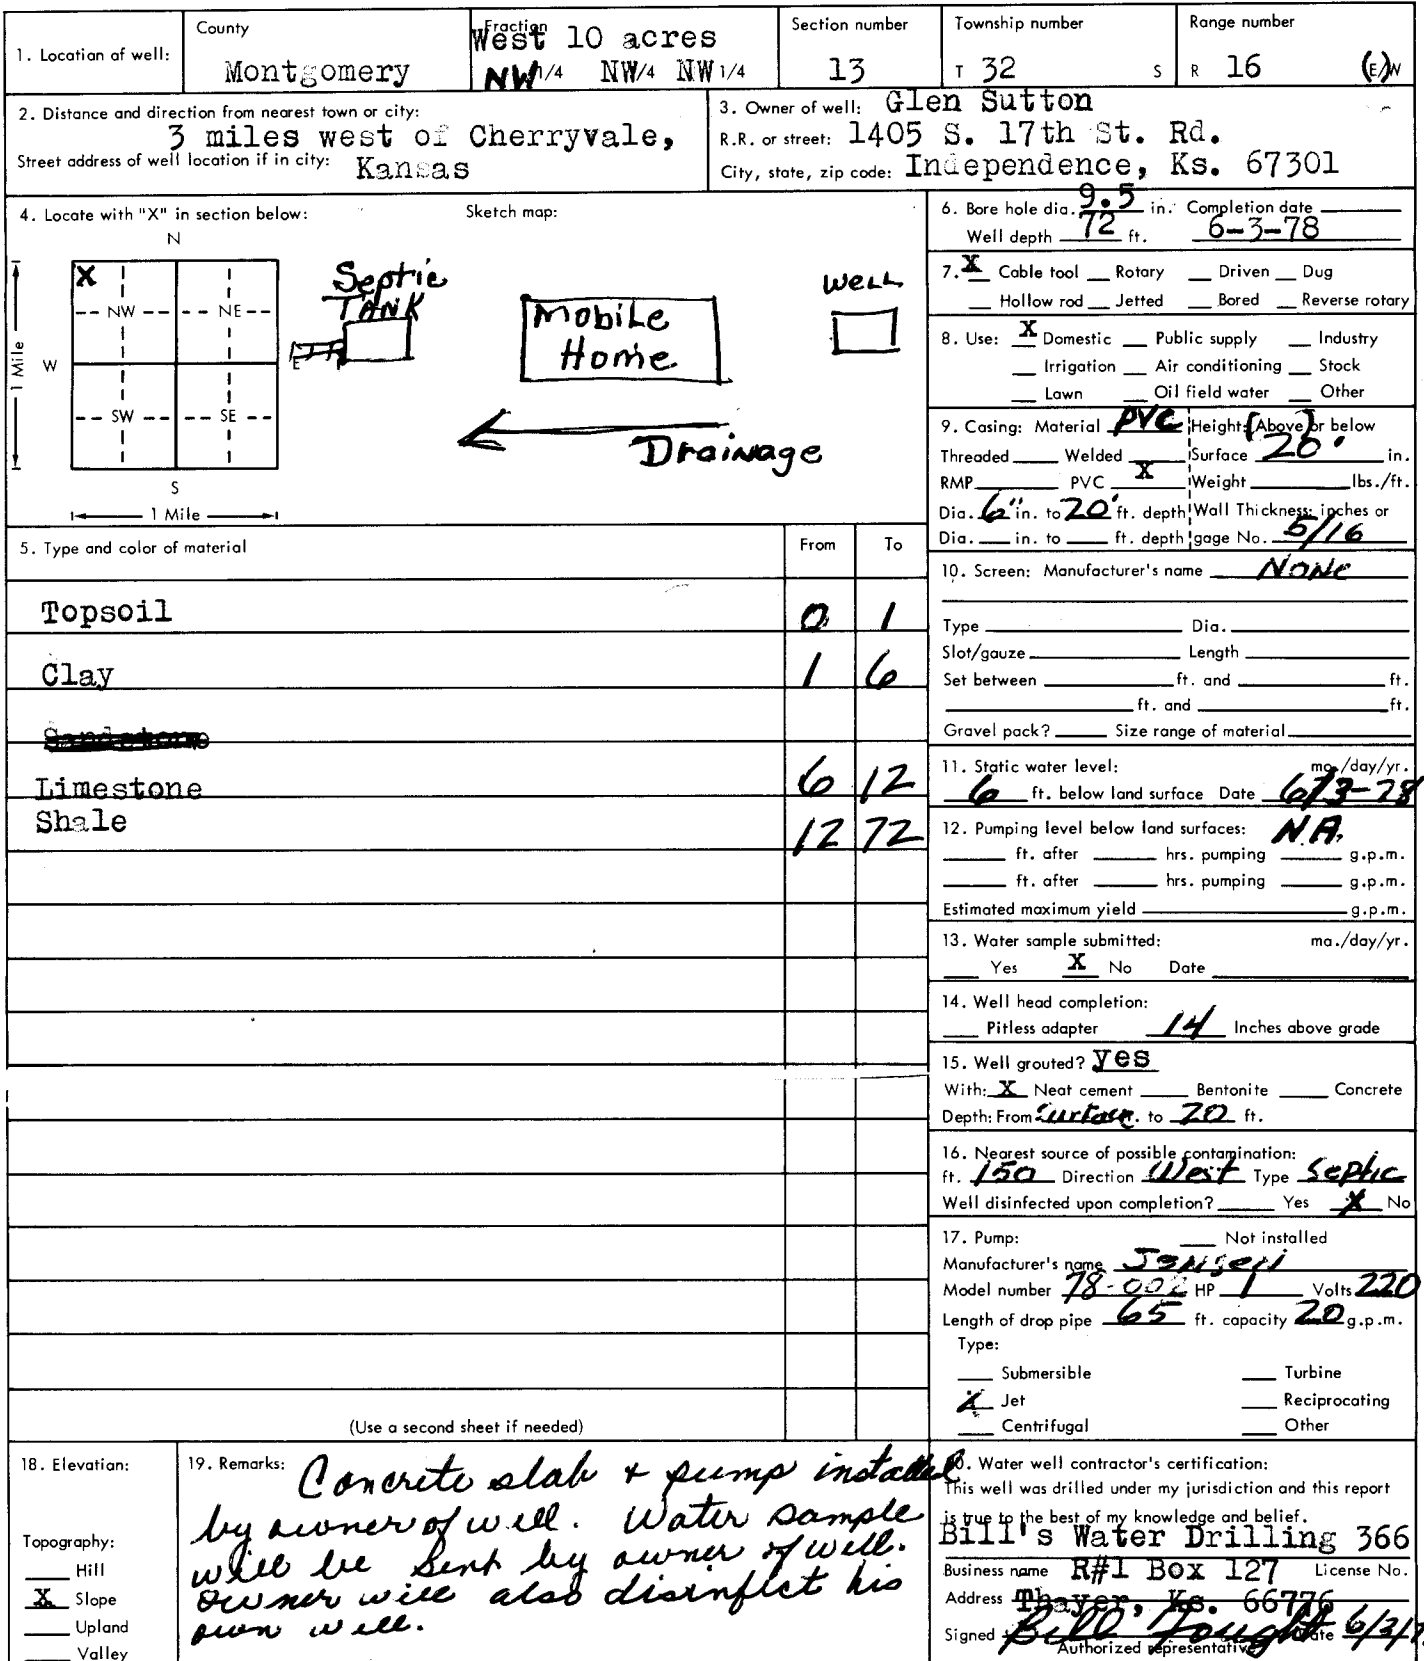 1. Location of well:
County
Montgomery
Fraction
West 10 acres
NW 1/4 NW 1/4 NW 1/4
Section number
13
Township number
T 32 S
Range number
R 16 (E)/W
2. Distance and direction from nearest town or city:
3 miles west of Cherryvale,
Street address of well location if in city: Kansas
3. Owner of well: Glen Sutton
R.R. or street: 1405 S. 17th St. Rd.
City, state, zip code: Independence, Ks. 67301
4. Locate with "X" in section below:
Sketch map:
N
X
NW NE
W E
SW SE
S
1 Mile
1 Mile
Septic
TANK
Mobile
Home
WELL
Drainage
5. Type and color of material From To
Topsoil 0 1
Clay 1 6
Sandstone
Limestone 6 12
Shale 12 72
(Use a second sheet if needed)
6. Bore hole dia. 9.5 in. Completion date
Well depth 72 ft. 6-3-78
7. X Cable tool Rotary Driven Dug
Hollow rod Jetted Bored Reverse rotary
8. Use: X Domestic Public supply Industry
Irrigation Air conditioning Stock
Lawn Oil field water Other
9. Casing: Material PVC Height: (Above) or below
Threaded Welded Surface 20' in.
RMP PVC X Weight lbs./ft.
Dia. 6" in. to 20' ft. depth Wall Thickness: inches or
Dia. in. to ft. depth gage No. 5/16
10. Screen: Manufacturer's name NONE
Type Dia.
Slot/gauze Length
Set between ft. and ft.
ft. and ft.
Gravel pack? Size range of material
11. Static water level: mo./day/yr.
6 ft. below land surface Date 6/3-78
12. Pumping level below land surfaces: N.A.
ft. after hrs. pumping g.p.m.
ft. after hrs. pumping g.p.m.
Estimated maximum yield g.p.m.
13. Water sample submitted: mo./day/yr.
Yes X No Date
14. Well head completion:
Pitless adapter 14 Inches above grade
15. Well grouted? yes
With: X Neat cement Bentonite Concrete
Depth: From Surface to 20 ft.
16. Nearest source of possible contamination:
ft. 150 Direction West Type Septic
Well disinfected upon completion? Yes X No
17. Pump: Not installed
Manufacturer's name Jensen
Model number 78-002 HP 1 Volts 220
Length of drop pipe 65 ft. capacity 20 g.p.m.
Type:
Submersible Turbine
X Jet Reciprocating
Centrifugal Other
18. Elevation:
Topography:
Hill
X Slope
Upland
Valley
19. Remarks: Concrete slab + pump installed
by owner of well. Water sample
will be sent by owner of well.
Owner will also disinfect his
own well.
20. Water well contractor's certification:
This well was drilled under my jurisdiction and this report
is true to the best of my knowledge and belief.
Bill's Water Drilling 366
Business name R#1 Box 127 License No.
Address Thayer, Ks. 66776
Signed Bill Fought Date 6/3/7
Authorized representative